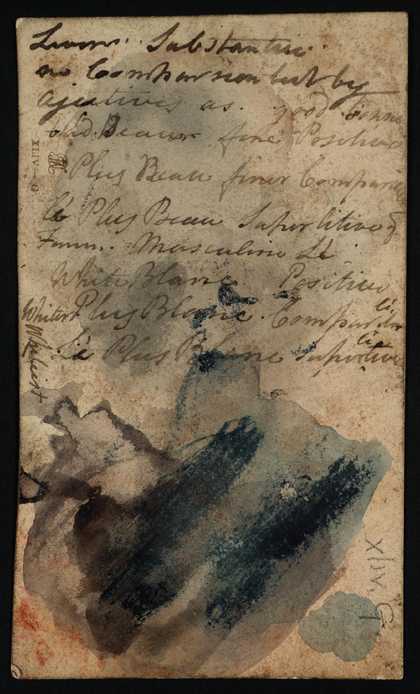 Substantive
no Comparison but by
ajectives as. good
old. Beaux fine Positive
Plus Beau finer Compara
Le Plus Beau Superlitive
Femn. Masculine Le
White Blanc Positive
Whiter Plus Blanc. Compar
Le Plus Blanc Superlitive
Whitest
XIV. G